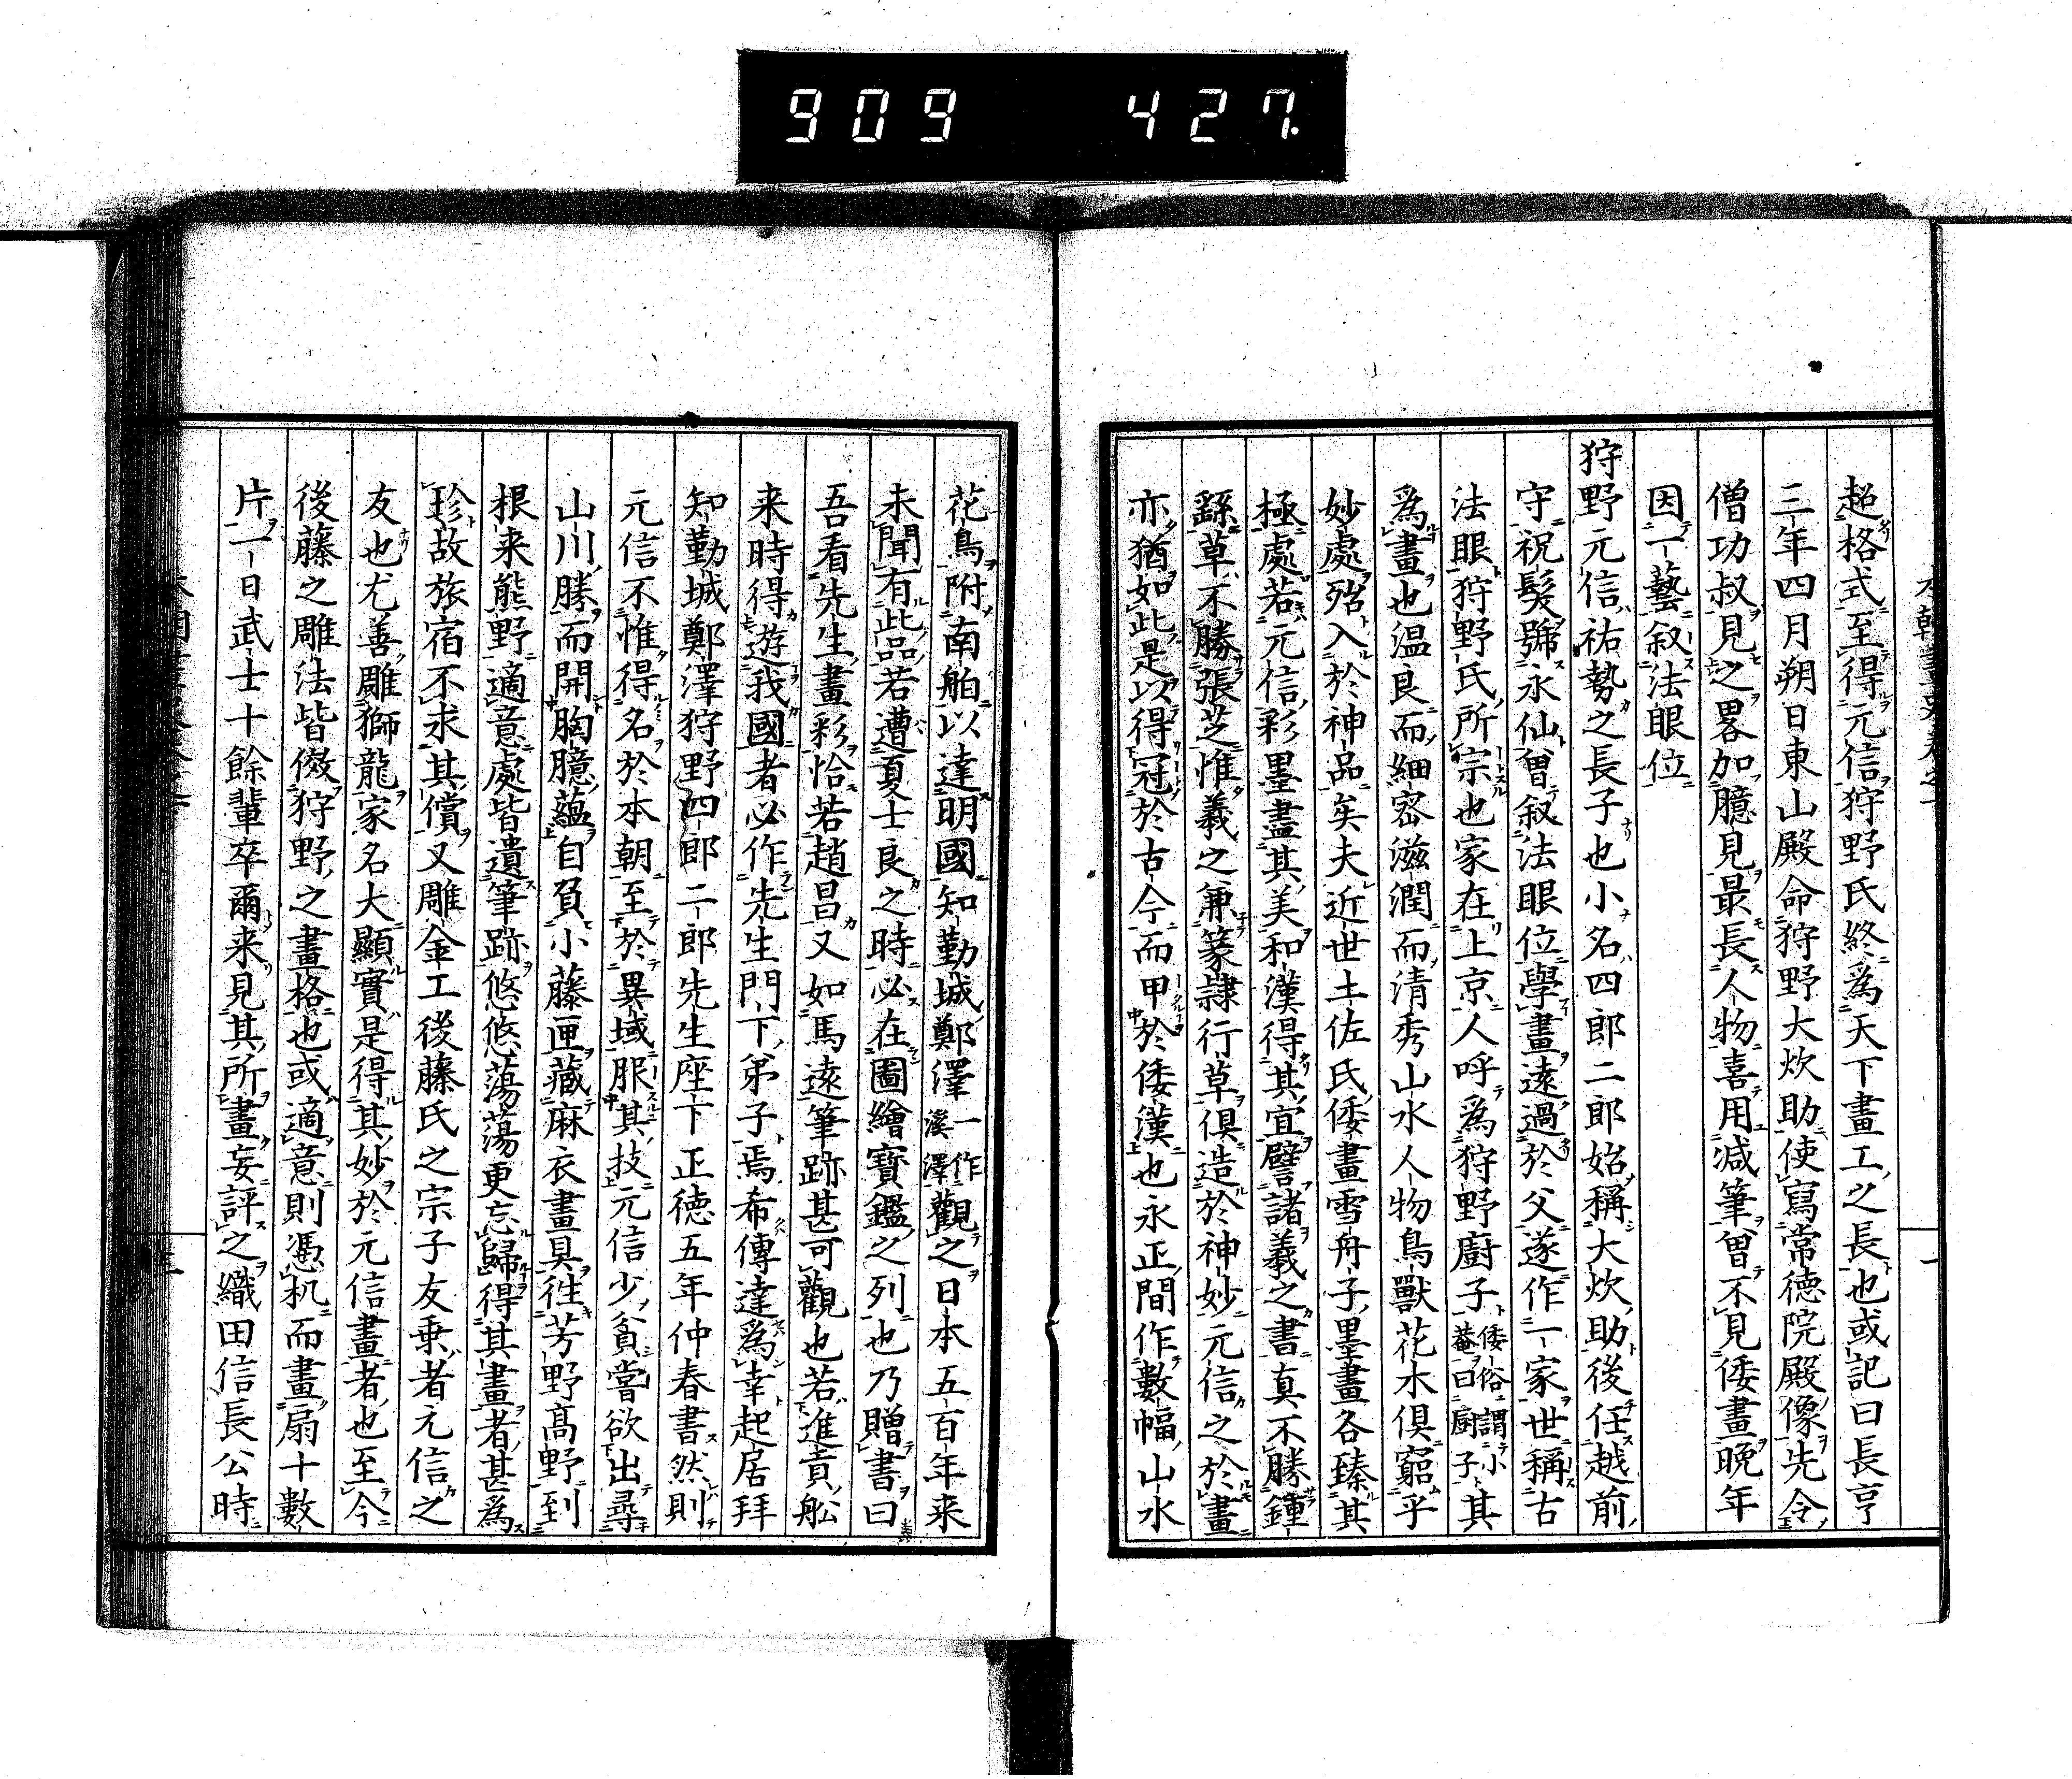 909 427.
超格式至得元信狩野氏終爲天下畫工之長也或記曰長亨
三年四月朔日東山殿命狩野大炊助使寫常徳院殿像先令
僧功叔見之畧加臆見最長人物喜用減筆曾不見倭畫晩年
因一藝叙法眼位
狩野元信祐勢之長子也小名四郎二郎始稱大炊助後任越前
守祝髮號永仙曾叙法眼位學畫遠過於父遂作一家世稱古
法眼狩野氏所宗也家在上京人呼爲狩野廚子倭俗謂小菴曰廚子其
爲畫也温良而細密滋潤而清秀山水人物鳥獸花木倶窮乎
妙處殆入於神品矣夫近世土佐氏倭畫雪舟子墨畫各臻其
極處若元信彩墨盡其美和漢得其宜譬諸羲之書真不勝鍾
繇草不勝張芝惟羲之兼篆隷行草倶造於神妙元信之於畫
亦猶如此是以得冠於古今而甲於倭漢也永正間作數幅山水
花鳥附南舶以達明國知勤城鄭澤一作溪澤觀之日本五百年来
未聞有此品若遭夏士良之時必在圖繪寶鑑之列也乃贈書曰
吾看先生畫彩恰若趙昌又如馬遠筆跡甚可觀也若進貢舩
来時得遊我國者必作先生門下弟子焉希傳達爲幸起居拜
知勤城鄭澤狩野四郎二郎先生座下正徳五年仲春書然則
元信不惟得名於本朝至於異域服其技元信少貧嘗欲出尋
山川勝而開胸臆蘊自負小藤匣藏麻衣畫具往芳野高野到
根来熊野適意處皆遺筆跡悠悠蕩蕩更忘歸得其畫者甚爲
珍故旅宿不求其償又雕金工後藤氏之宗子友乗者元信之
友也尤善雕獅龍家名大顯實是得其妙於元信畫者也至今
後藤之雕法皆傚狩野之畫格也或適意則憑机而畫扇十數
片一日武士十餘輩卒爾来見其所畫妄評之織田信長公時